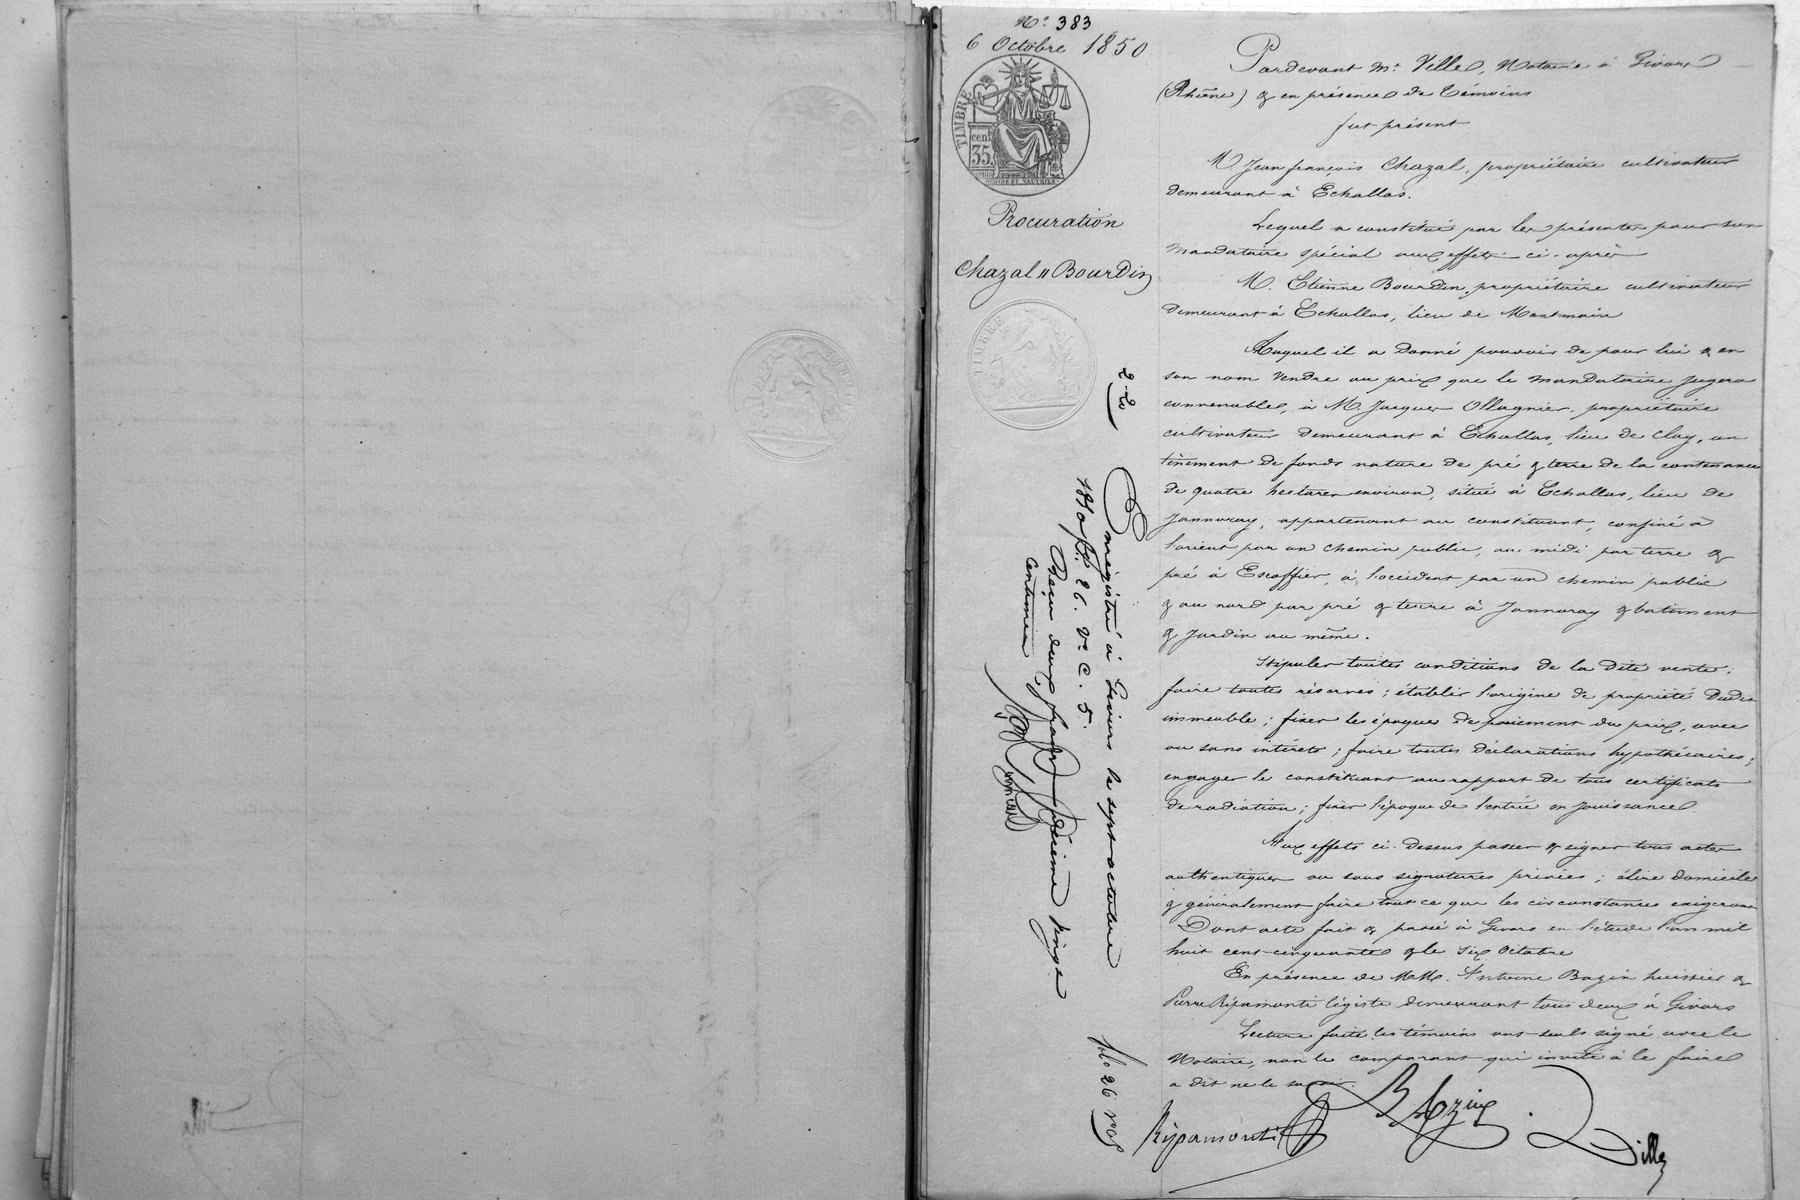 N.º 383
6 Octobre 1850
TIMBRE
cent
35
Procuration
Chazal à Bourdin
TIMBRE
Pardevant Mᵉ Ville, Notaire à Givors
(Rhône) & en présence de témoins
fut présent
M Jean françois Chazal, propriétaire cultivateur
demeurant à Echallas.
Lequel a constitué par les présentes pour son
mandataire spécial aux effets ci-après
M. Etienne Bourdin, propriétaire cultivateur
demeurant à Echallas, lieu de Montmain
Auquel il a donné pouvoir de pour lui & en
son nom vendre au prix que le mandataire jugera
convenable, à M. Jacques Ollagnier, propriétaire
cultivateur demeurant à Echallas, lieu de Clay, un
tènement de fonds nature de pré & terre de la contenance
de quatre hectares environ, situé à Echallas, lieu de
Jannoray, appartenant au constituant, confiné à
l'orient par un chemin public, au midi par terre &
pré à Escoffier, à l'occident par un chemin public
& au nord par pré & terre à Jannoray & batiment
& jardin au même.
Stipuler toutes conditions de la dite vente;
faire toutes réserves; établir l'origine de propriété dudit
immeuble; fixer les époques de paiement du prix, avec
ou sans intérêts; faire toutes déclarations hypothécaires;
engager le constituant au rapport de tous certificats
de radiation; fixer l'époque de l'entrée en jouissance
Aux effets ci-dessus passer & signer tous actes
authentiques ou sous signatures privées; élire domicile
& généralement faire tout ce que les circonstances exigeront
Dont acte fait & passé à Givors en l'étude l'an mil
huit cent cinquante & le six Octobre
En présence de MM. Antoine Bazin huissier &
Pierre Ripamonti légiste demeurant tous deux à Givors
Lecture faite les témoins ont seuls signé avec le
Notaire, non le comparant qui invité à le faire
a dit ne le savoir.
Ripamonti
Bazin
Ville
2-20
Enregistré à Givors le sept octobre
1850 fº. 26. Vº C. 5.
Reçu deux francs décime vingt
centimes
folo 26 vo 5